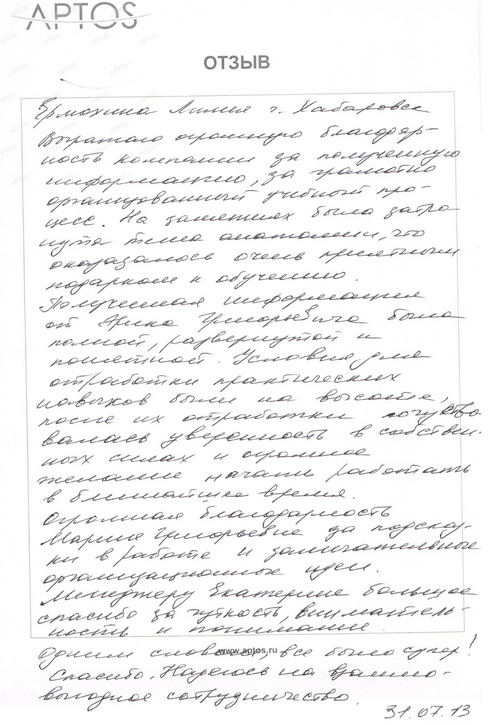 APTOS
ОТЗЫВ
Ермохина Лилия г. Хабаровск
Выражаю огромную благодар-
ность компании за полученную
информацию, за грамотно
организованный учебный про-
цесс. На занятиях была затро
нута тема анатомии, что
оказалось очень приятным
подарком к обучению.
Полученная информация
от Игоревича была
полной, развернутой и
понятной. Условия для
отработки практических
навыков были на высоте,
после их отработки почувство
валась уверенность в собствен-
ных силах и огромное
желание начать работать
в ближайшее время.
Огромная благодарность
Марине Григорьевне за подсказ-
ки в работе и замечательные
организационные идеи.
Менеджеру Екатерине большое
спасибо за чуткость, вниматель-
ность и понимание.
www.aptos.ru
Одним словом, все было супер!
Спасибо. Надеюсь на взаимо-
выгодное сотрудничество.
31.07.13